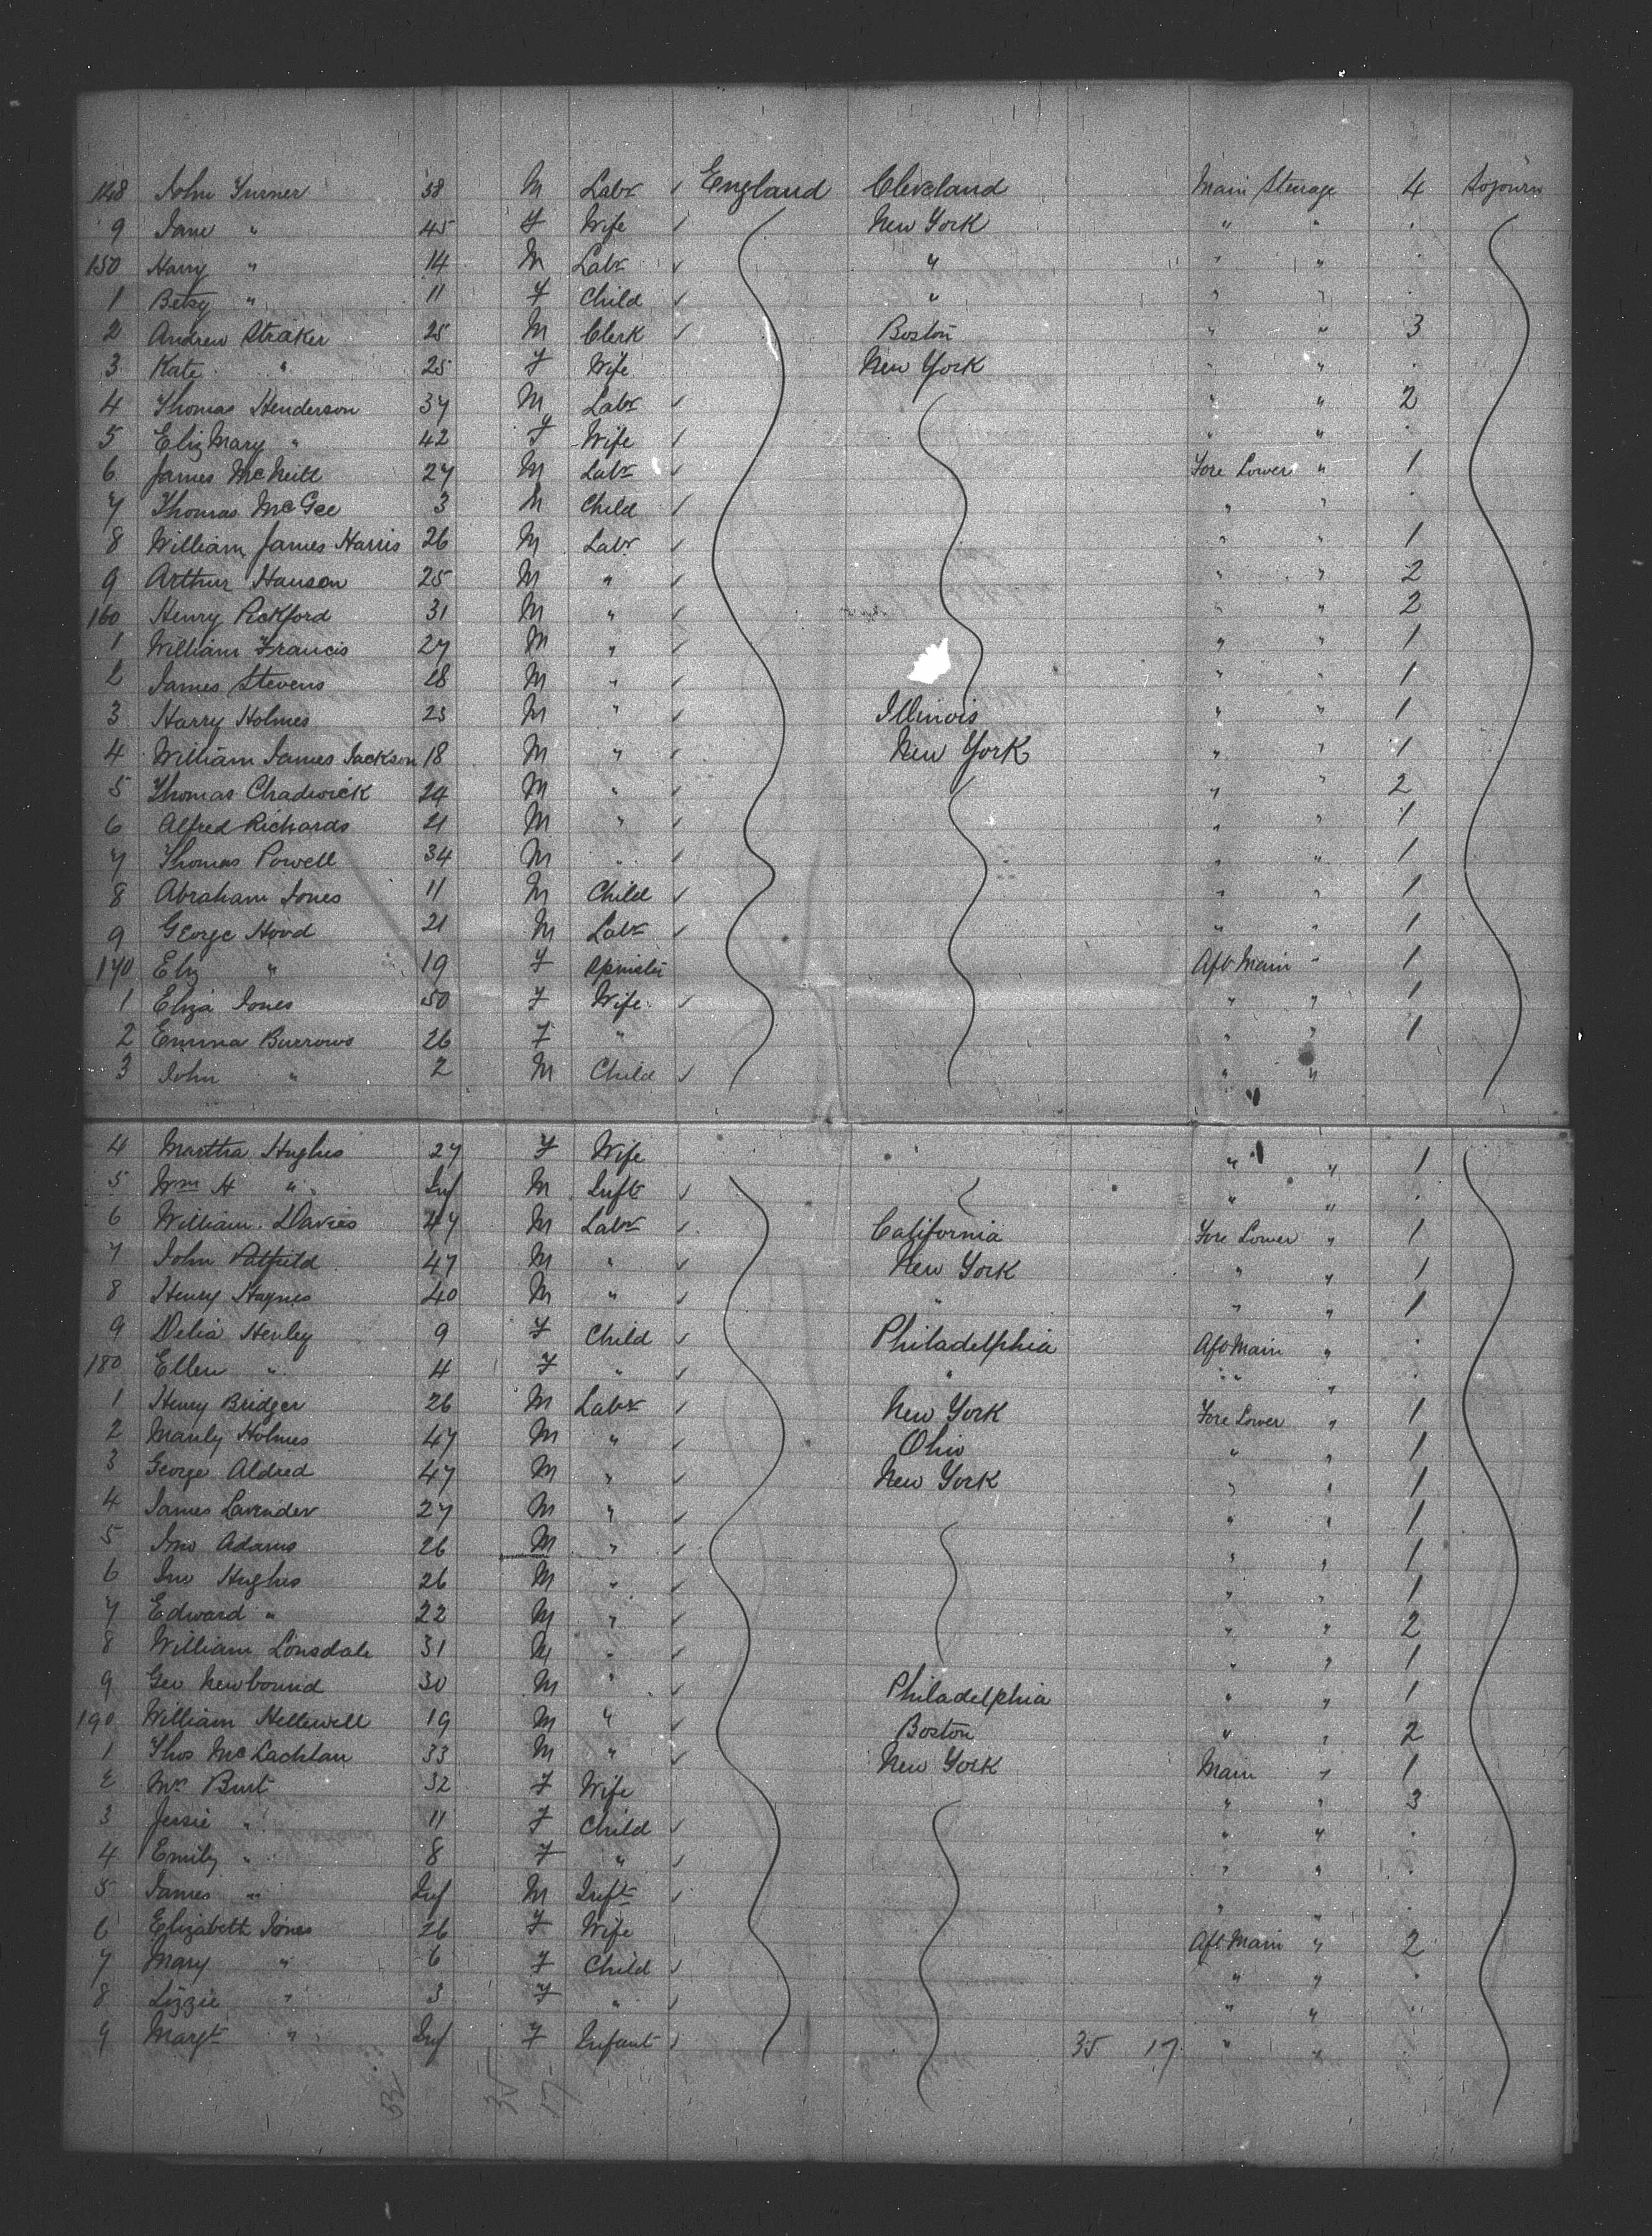 148 John Turner 38 M Labr ✓ England Cleveland Main Steerage 4 Sojourn
9 Jane " 45 F Wife ✓ New York " " .
150 Harry " 14 M Labr ✓ " " " .
1 Betsy " 11 F Child ✓ " " " .
2 Andrew Straker 25 M Clerk ✓ Boston " " 3
3 Kate " 25 F Wife New York " " .
4 Thomas Henderson 37 M Labr ✓ " " 2
5 Eliz Mary " 42 F Wife ✓ " " .
6 James McNeill 27 M Labr ✓ Fore Lower " 1
7 Thomas McGee 3 M Child ✓ " " .
8 William James Harris 26 M Labr ✓ " " 1
9 Arthur Hanson 25 M " ✓ " " 2
160 Henry Pickford 31 M " ✓ " " 2
1 William Francis 27 M " ✓ " " 1
2 James Stevens 28 M " ✓ " " 1
3 Harry Holmes 23 M " ✓ Illinois " " 1
4 William James Jackson 18 M " ✓ New York " " 1
5 Thomas Chadwick 24 M " ✓ " " 2
6 Alfred Richards 21 M " ✓ " " 1
7 Thomas Powell 34 M " ✓ " " 1
8 Abraham Jones 11 M Child ✓ " " 1
9 George Hood 21 M Labr ✓ " " 1
170 Eliz " 19 F Spinster Aft Main " 1
1 Eliza Jones 50 F Wife ✓ " " 1
2 Emma Burrows 26 F " " " 1
3 John " 2 M Child ✓ " "
4 Martha Hughes 27 F Wife " " 1
5 Wm H " Inf M Inft ✓ " " .
6 William Davies 47 M Labr ✓ California Fore Lower " 1
7 John 47 M " ✓ New York " " 1
8 Henry Haynes 40 M " ✓ " " " 1
9 Delia Henley 9 F Child ✓ Philadelphia Aft Main " .
180 Ellen " 4 F " ✓ " " " .
1 Henry Bridger 26 M Labr ✓ New York Fore Lower " 1
2 Manly Holmes 47 M " ✓ Ohio " " 1
3 George Aldred 47 M " ✓ New York " " 1
4 James Lavender 27 M " ✓ " " 1
5 Jno Adams 26 M " ✓ " " 1
6 Jno Hughes 26 M " ✓ " " 1
7 Edward " 22 M " ✓ " " 2
8 William Lonsdale 31 M " ✓ " " 1
9 Geo Newbound 30 M " ✓ Philadelphia " " 1
190 William Hellewell 19 M " ✓ Boston " " 2
1 Thos McLachlan 33 M " ✓ New York Main " 1
2 Mrs Burt 32 F Wife " " 3
3 Jessie " 11 F Child ✓ " " .
4 Emily " 8 F " ✓ " " .
5 James " Inf M Inft ✓ " " .
6 Elizabeth Jones 26 F Wife Aft Main " 2
7 Mary " 6 F Child ✓ " " .
8 Lizzie " 3 F " ✓ " " .
9 Margt " Inf F Infant ✓ 35 17 " " .
52 35 17